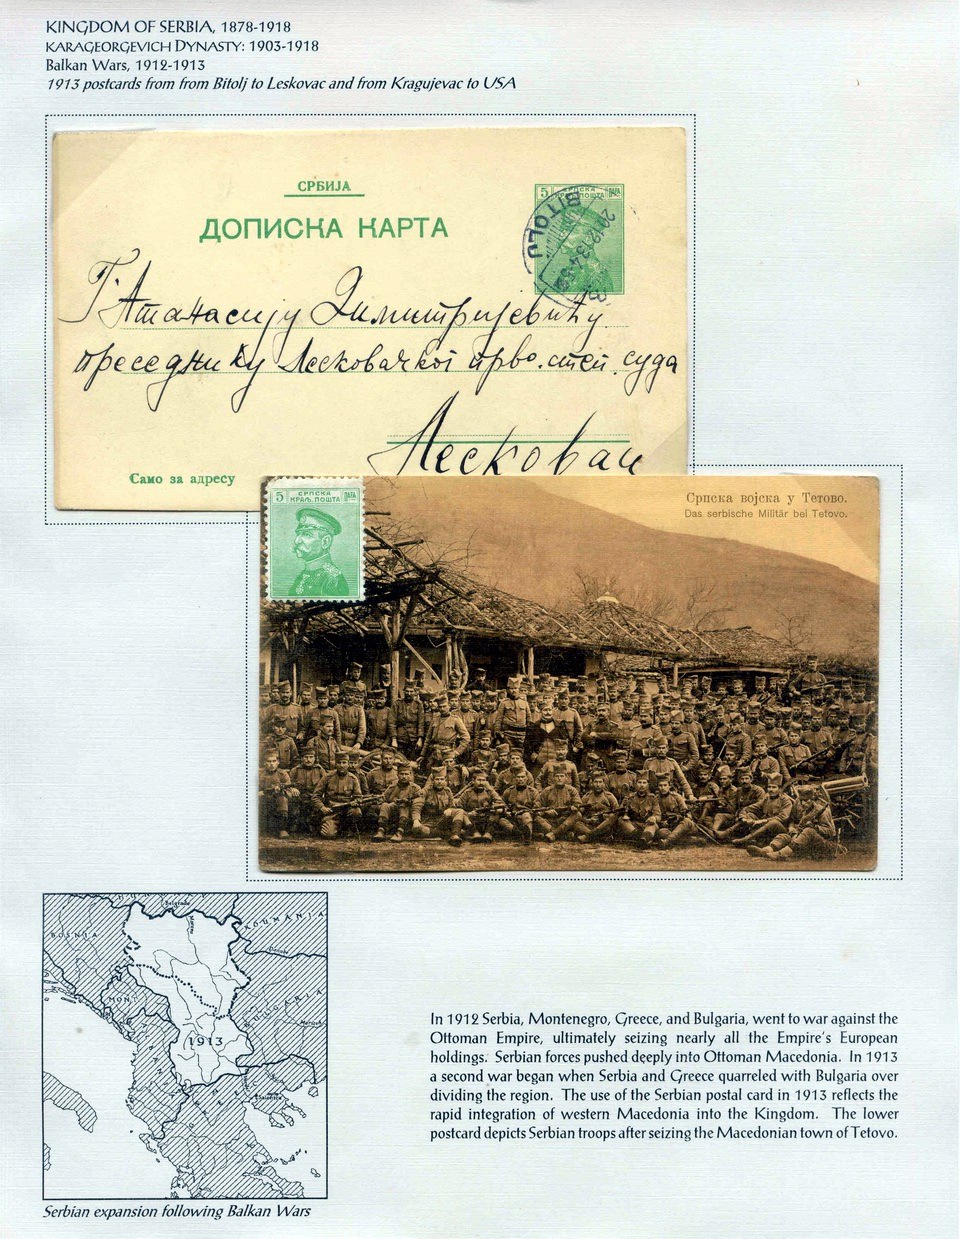 KINGDOM OF SERBIA, 1878-1918
KARAGEORGEVICH DYNASTY: 1903-1918
Balkan Wars, 1912-1913
1913 postcards from from Bitolj to Leskovac and from Kragujevac to USA
СРБИЈА
ДОПИСКА КАРТА
5 СРПСКА ПАРА
КРАЉ. ПОШТА
BITOLJ
Г. Атанасију Димитријевићу
преседнику Лесковачког прво.степ. суда
Лесковац
Само за адресу
5 СРПСКА ПАРА
КРАЉ. ПОШТА
Српска војска у Тетово.
Das serbische Militär bei Tetovo.
Belgrade
ROUMANIA
BOSNIA
MONT.
BULGARIA
1913
In 1912 Serbia, Montenegro, Greece, and Bulgaria, went to war against the
Ottoman Empire, ultimately seizing nearly all the Empire's European
holdings. Serbian forces pushed deeply into Ottoman Macedonia. In 1913
a second war began when Serbia and Greece quarreled with Bulgaria over
dividing the region. The use of the Serbian postal card in 1913 reflects the
rapid integration of western Macedonia into the Kingdom. The lower
postcard depicts Serbian troops after seizing the Macedonian town of Tetovo.
Serbian expansion following Balkan Wars